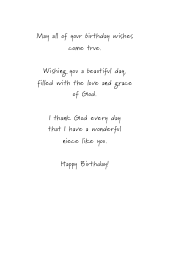 May all of your birthday wishes
come true.
Wishing you a beautiful day,
filled with the love and grace
of God.
I thank God every day
that I have a wonderful
niece like you.
Happy Birthday!